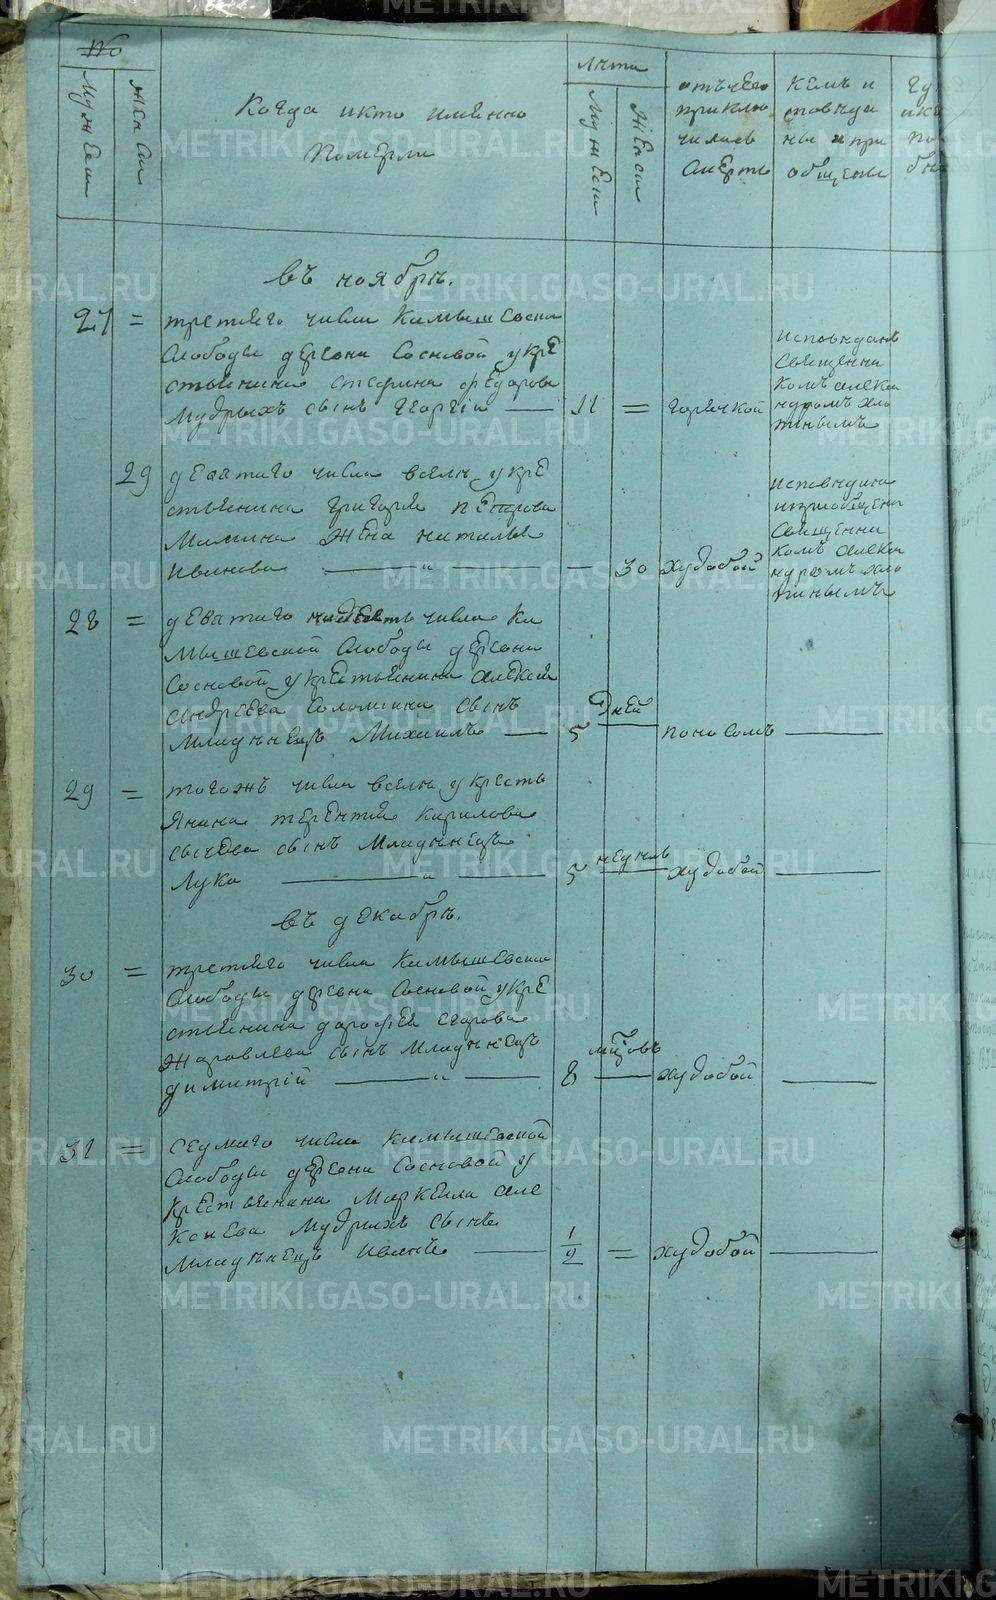 №
Мужеска
Женска
Когда икто имѣнно
Померли
лѣта
Мужеска
Женска
отъчего
приклю
чилась
смерть
Кемъ и
споведа
ны и при
общены
въ ноябрѣ.
27 = третяго числа Камышевской
Слободы деревни Сосновой укре
стьянина Стефана федорова
Мудрыхъ сынъ Георгіи — 11 = горячкой
Исповѣданъ
Священни
комъ алекса
ндромъ
29 девятаго числа вселѣ укре
стьянина Григорья петрова
Мамина жена наталья
Иванова — „ — — 30 худобой
Исповѣдана
иприобщена
Священни
комъ алекса
ндромъ
28 = девятаго надесеть числа Ка
мышевской Слободы деревни
Сосновой укрестьянина алексея
андреева Соломина сынъ
Младѣнецъ Михаилъ — 5 Дней поносомъ —
29 = тогожъ числа вселѣ укресть
янина терентья Кирилова
сычева сынъ Младѣнецъ
Лука — „ — 5 недѣль худобой —
въ декабрѣ.
30 = третяго числа Камышевской
Слободы деревни Сосновой укре
стьянина дарофея егорова
Жаравлева сынъ Младѣнецъ
димитрій — „ — 8 мѣцовъ худобой —
31 = седмаго числа Камышевской
Слободы деревни Сосновой у
крестьянина Маркела але
ксеева Мудрыхъ сынъ
Младѣнецъ Иванъ — 1/2 = худобой —
METRIKI.GASO-URAL.RU